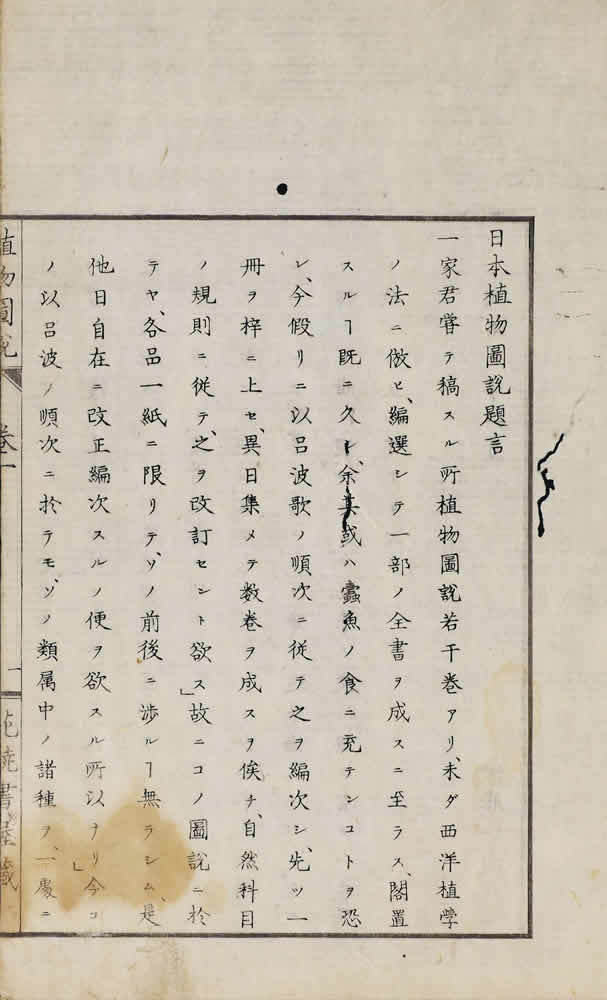 日本植物圖說題言
一家君嘗テ稿スル所植物圖說若干巻アリ、未ダ西洋植學
ノ法ニ倣ヒ、編選シテ一部ノ全書ヲ成スニ至ラス、閣置
スルヿ既ニ久シ、余其或ハ蠹魚ノ食ニ充テンコトヲ恐
レ、今假リニ以呂波歌ノ順次ニ従テ之ヲ編次シ、先ツ一
冊ヲ梓ニ上セ、異日集メテ数巻ヲ成スヲ俟チ、自然科目
ノ規則ニ従テ、之ヲ改訂セント欲ス」故ニコノ圖說ニ於
テヤ、各品一紙ニ限リテ、ソノ前後ニ渉ルヿ無ラシム、是
他日自在ニ改正編次スルノ便ヲ欲スル所以ナリ」今コ
ノ以呂波ノ順次ニ於テモ、ソノ類属中ノ諸種ヲ、一處ニ
植物圖說 巻一 一